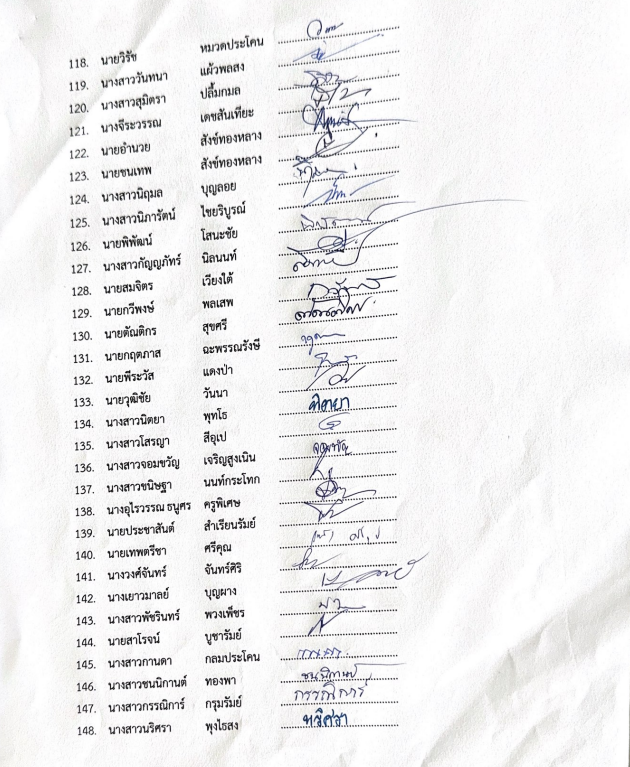 118. นายวิรัช หมวดประโคน
119. นางสาววันทนา แผ้วพลสง
120. นางสาวสุมิตรา ปลื้มกมล
121. นางจีระวรรณ เดชสันเทียะ
122. นายอำนวย สังข์ทองหลาง
123. นายชนเทพ สังข์ทองหลาง
124. นางสาวนิฤมล บุญลอย
125. นางสาวนิภารัตน์ ไชยริบูรณ์
126. นายพิพัฒน์ โสนะชัย
127. นางสาวกัญญภัทร์ นิลนนท์
128. นายสมจิตร เวียงใต้
129. นายกวีพงษ์ พลเสพ
130. นายตัณติกร สุขศรี
131. นายกฤตภาส ฉะพรรณรังษี
132. นายพีระวัส แดงป่า
133. นายวุฒิชัย วันนา
134. นางสาวนิตยา พุทโธ นิตยา
135. นางสาวโสรญา สีอุเป
136. นางสาวจอมขวัญ เจริญสูงเนิน จอมขวัญ
137. นางสาวขนิษฐา นนท์กระโทก
138. นางอุไรวรรณ ธนูศร ครูพิเศษ
139. นายประชาสันต์ สำเรียนรัมย์
140. นายเทพตรีชา ศรีคุณ
141. นางวงศ์จันทร์ จันทร์ศิริ
142. นางเยาวมาลย์ บุญผาง
143. นางสาวพัชรินทร์ พวงเพ็ชร
144. นายสาโรจน์ บูชารัมย์
145. นางสาวกานดา กลมประโคน กานดา
146. นางสาวชนนิกานต์ ทองพา ชนนิกานต์
147. นางสาวกรรณิการ์ กรุมรัมย์ กรรณิการ์
148. นางสาวนริศรา พุงไธสง นริศรา